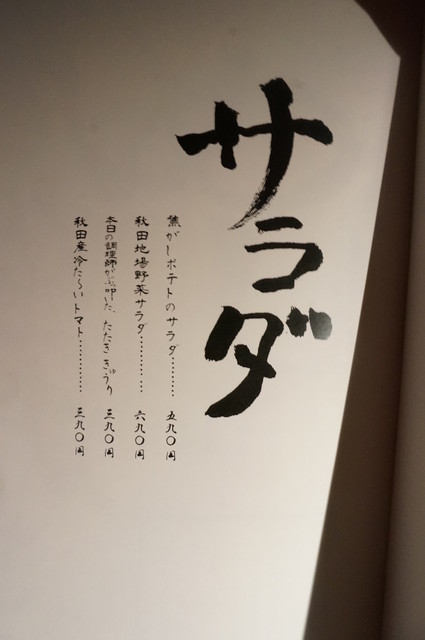 サラダ
焦がしポテトのサラダ………五九〇円
秋田地場野菜サラダ…………六九〇円
本日の調理師がぶっ叩いた、たたききゅうり 三九〇円
秋田産冷た〜いトマト…………三九〇円